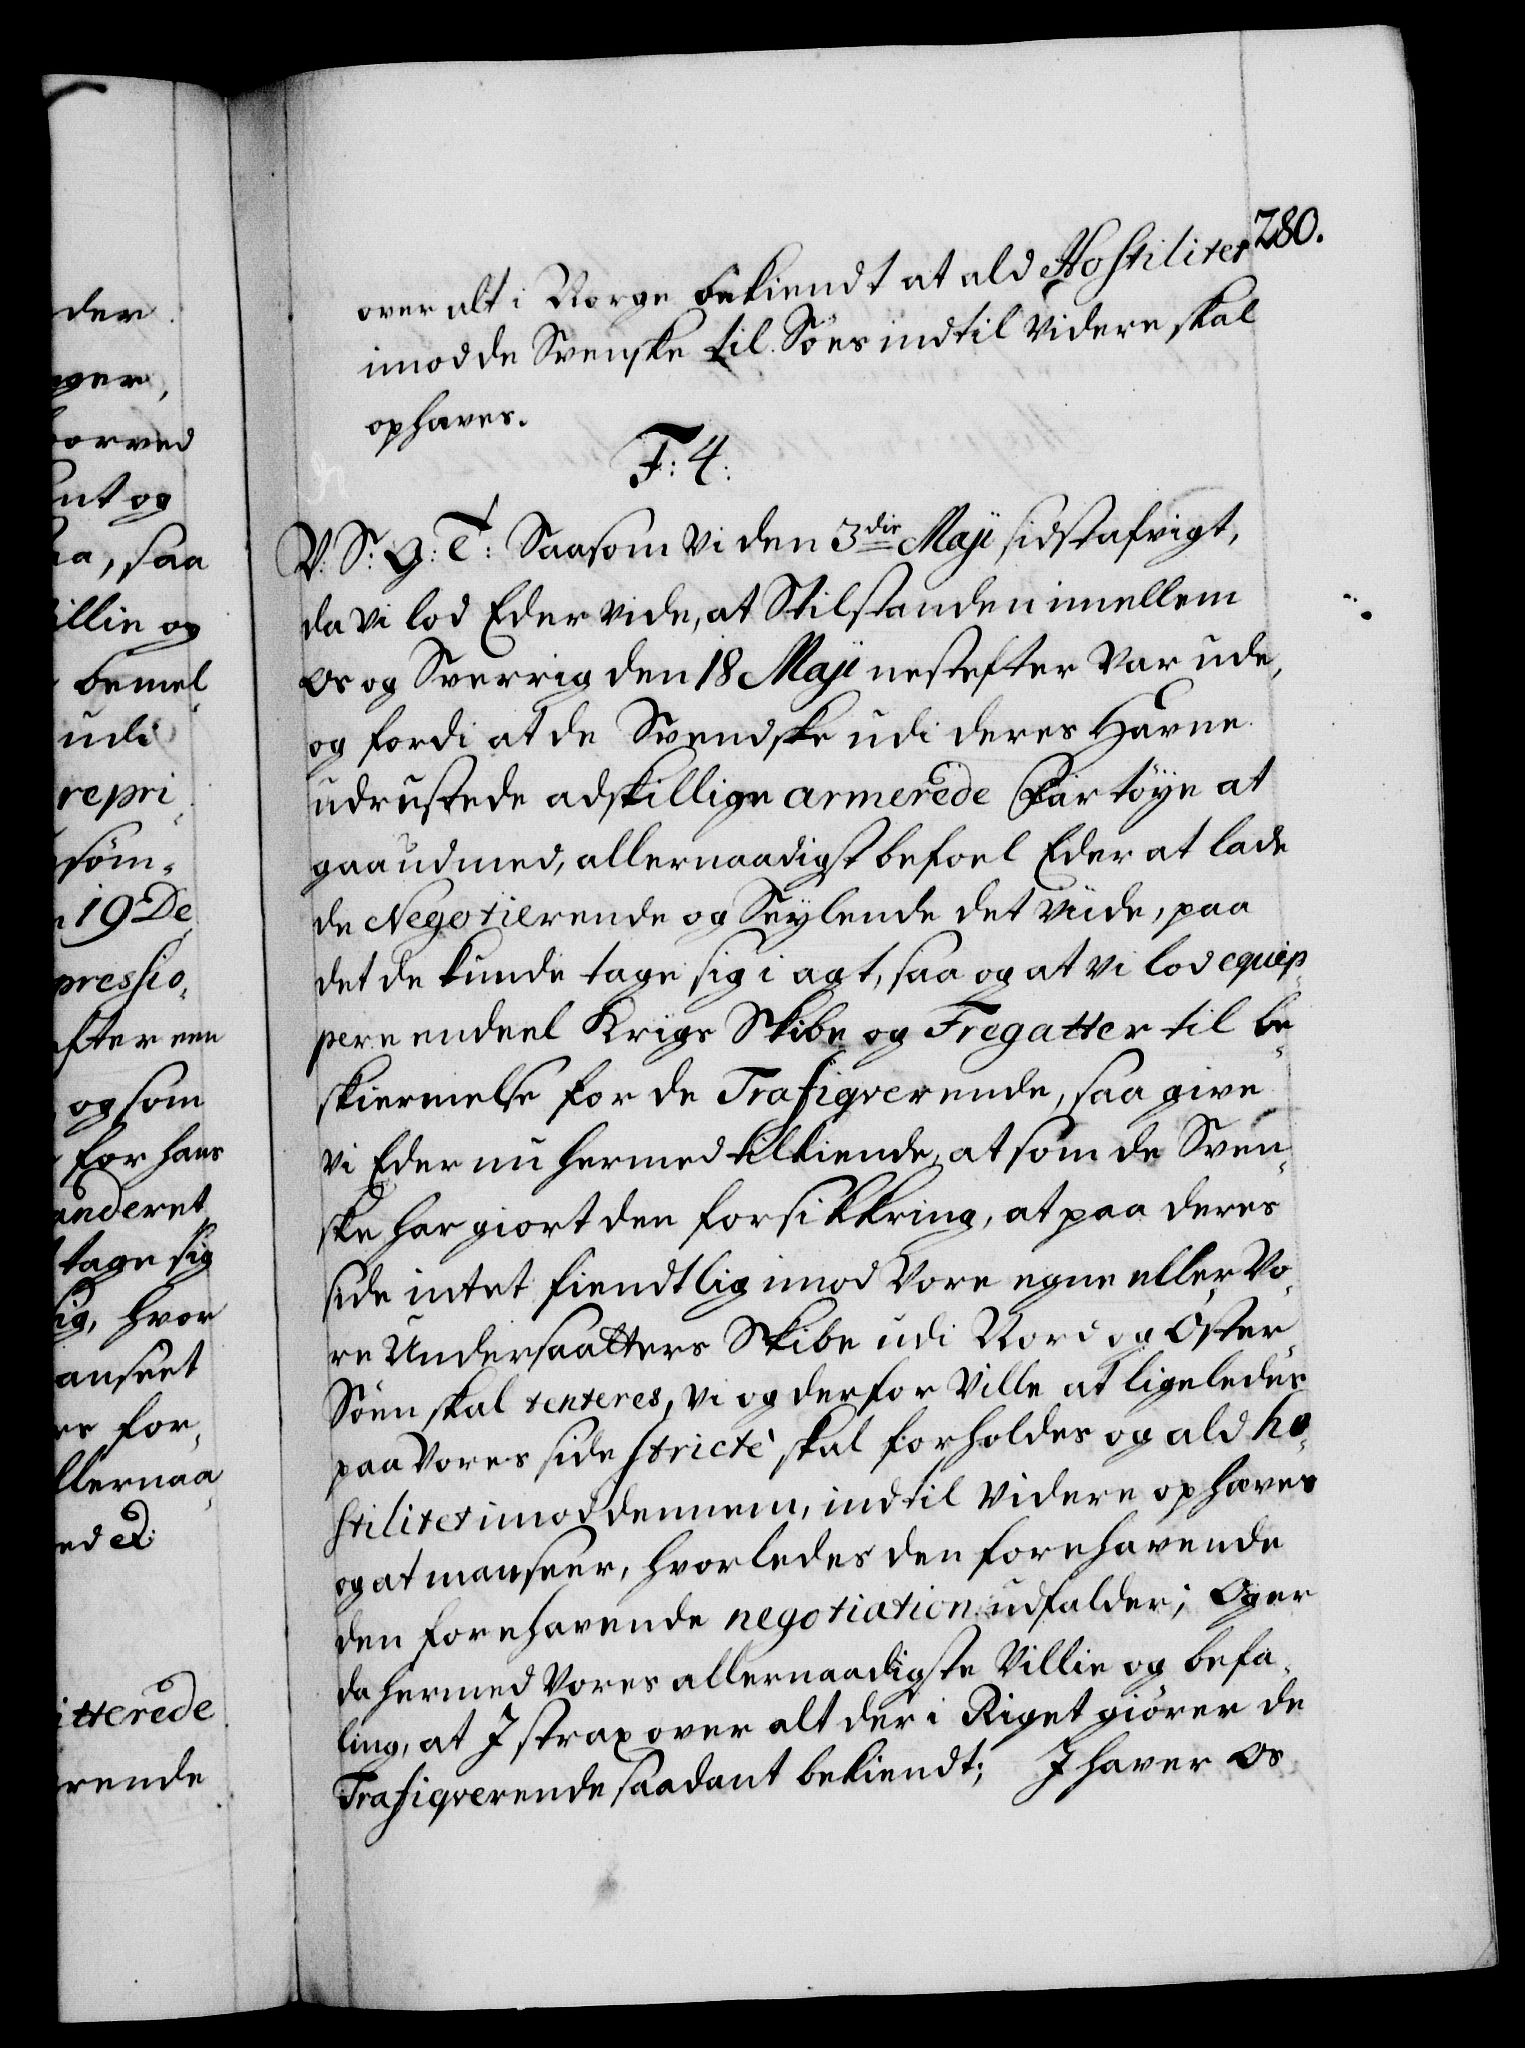 280.
over alt i Norge bekiendt at ald Hostilitet
imod de Svenske til Söes indtil Videre skal
ophæves.
F: 4:
V: S: G: T: Saasom Vi den 3die Maji sidst afvigt,
da Vi lod Eder vide, at Stilstanden imellem
os og Sverrig den 18 Maji nestefter Var ude,
og fordi at de Svendske udi deres Havne
udrustede adskillige armerede Fartöye at
gaa ud med, allernaadigst befoel Eder at lade
de Negotierende og Seylende det viide, paa
det de kunde tage sig i agt, saa og at vi lod equip-
pere endeel Krigs Skibe og Fregatter til be-
skiermelse for de Trafiqverende, saa give
vi Eder nu hermed tilkiende, at som de Sven-
ske har giort den forsikkring, at paa deres
side intet fiendtlig imod Vore egne eller Vo-
re Undersaatters Skibe udi Nord og Öster
Söen skal tenteres, Vi og derfor Ville at ligeledes
paa Vores side stricte skal forholdes og ald ho-
stilitet imod dennem, indtil Videre ophæves
og at man seer, hvorledes den forehavende
den forehavende negotiation udfalder; Og er
da hermed Vores allernaadigste Villie og befa-
ling, at I strax over alt der i Riget giörer de
Trafiqverende saadant bekiendt; I haver os
der
ager,
hvorved
og
saa
villie og
bemel-
udi
repri-
söm-
19 De
pressio-
efter een
og som
for hans
anderet
tage sig
hvor
anseet
for-
allernaa-
itterede
rende